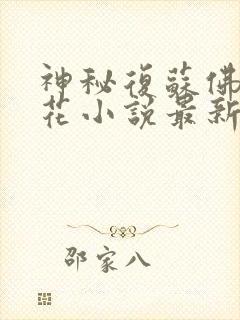 神秘復蘇佛
花小說最新
邵家八